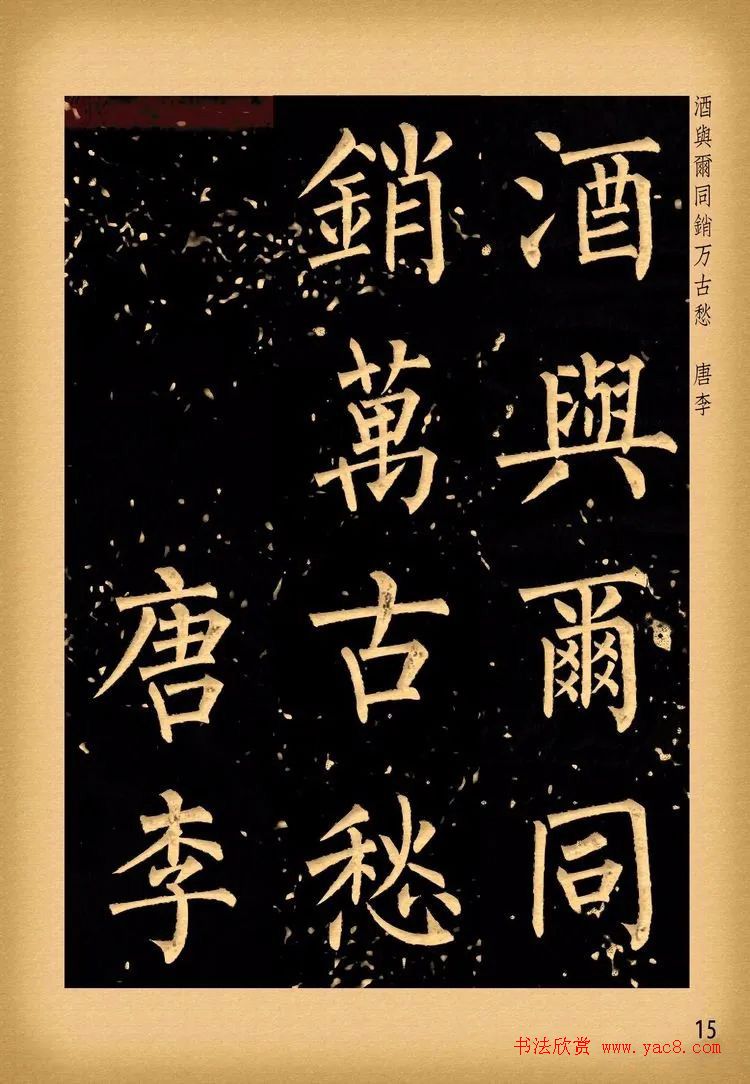 酒與爾同銷万古愁　唐李
酒與爾同
銷萬古愁
唐李
15
书法欣赏 www.yac8.com